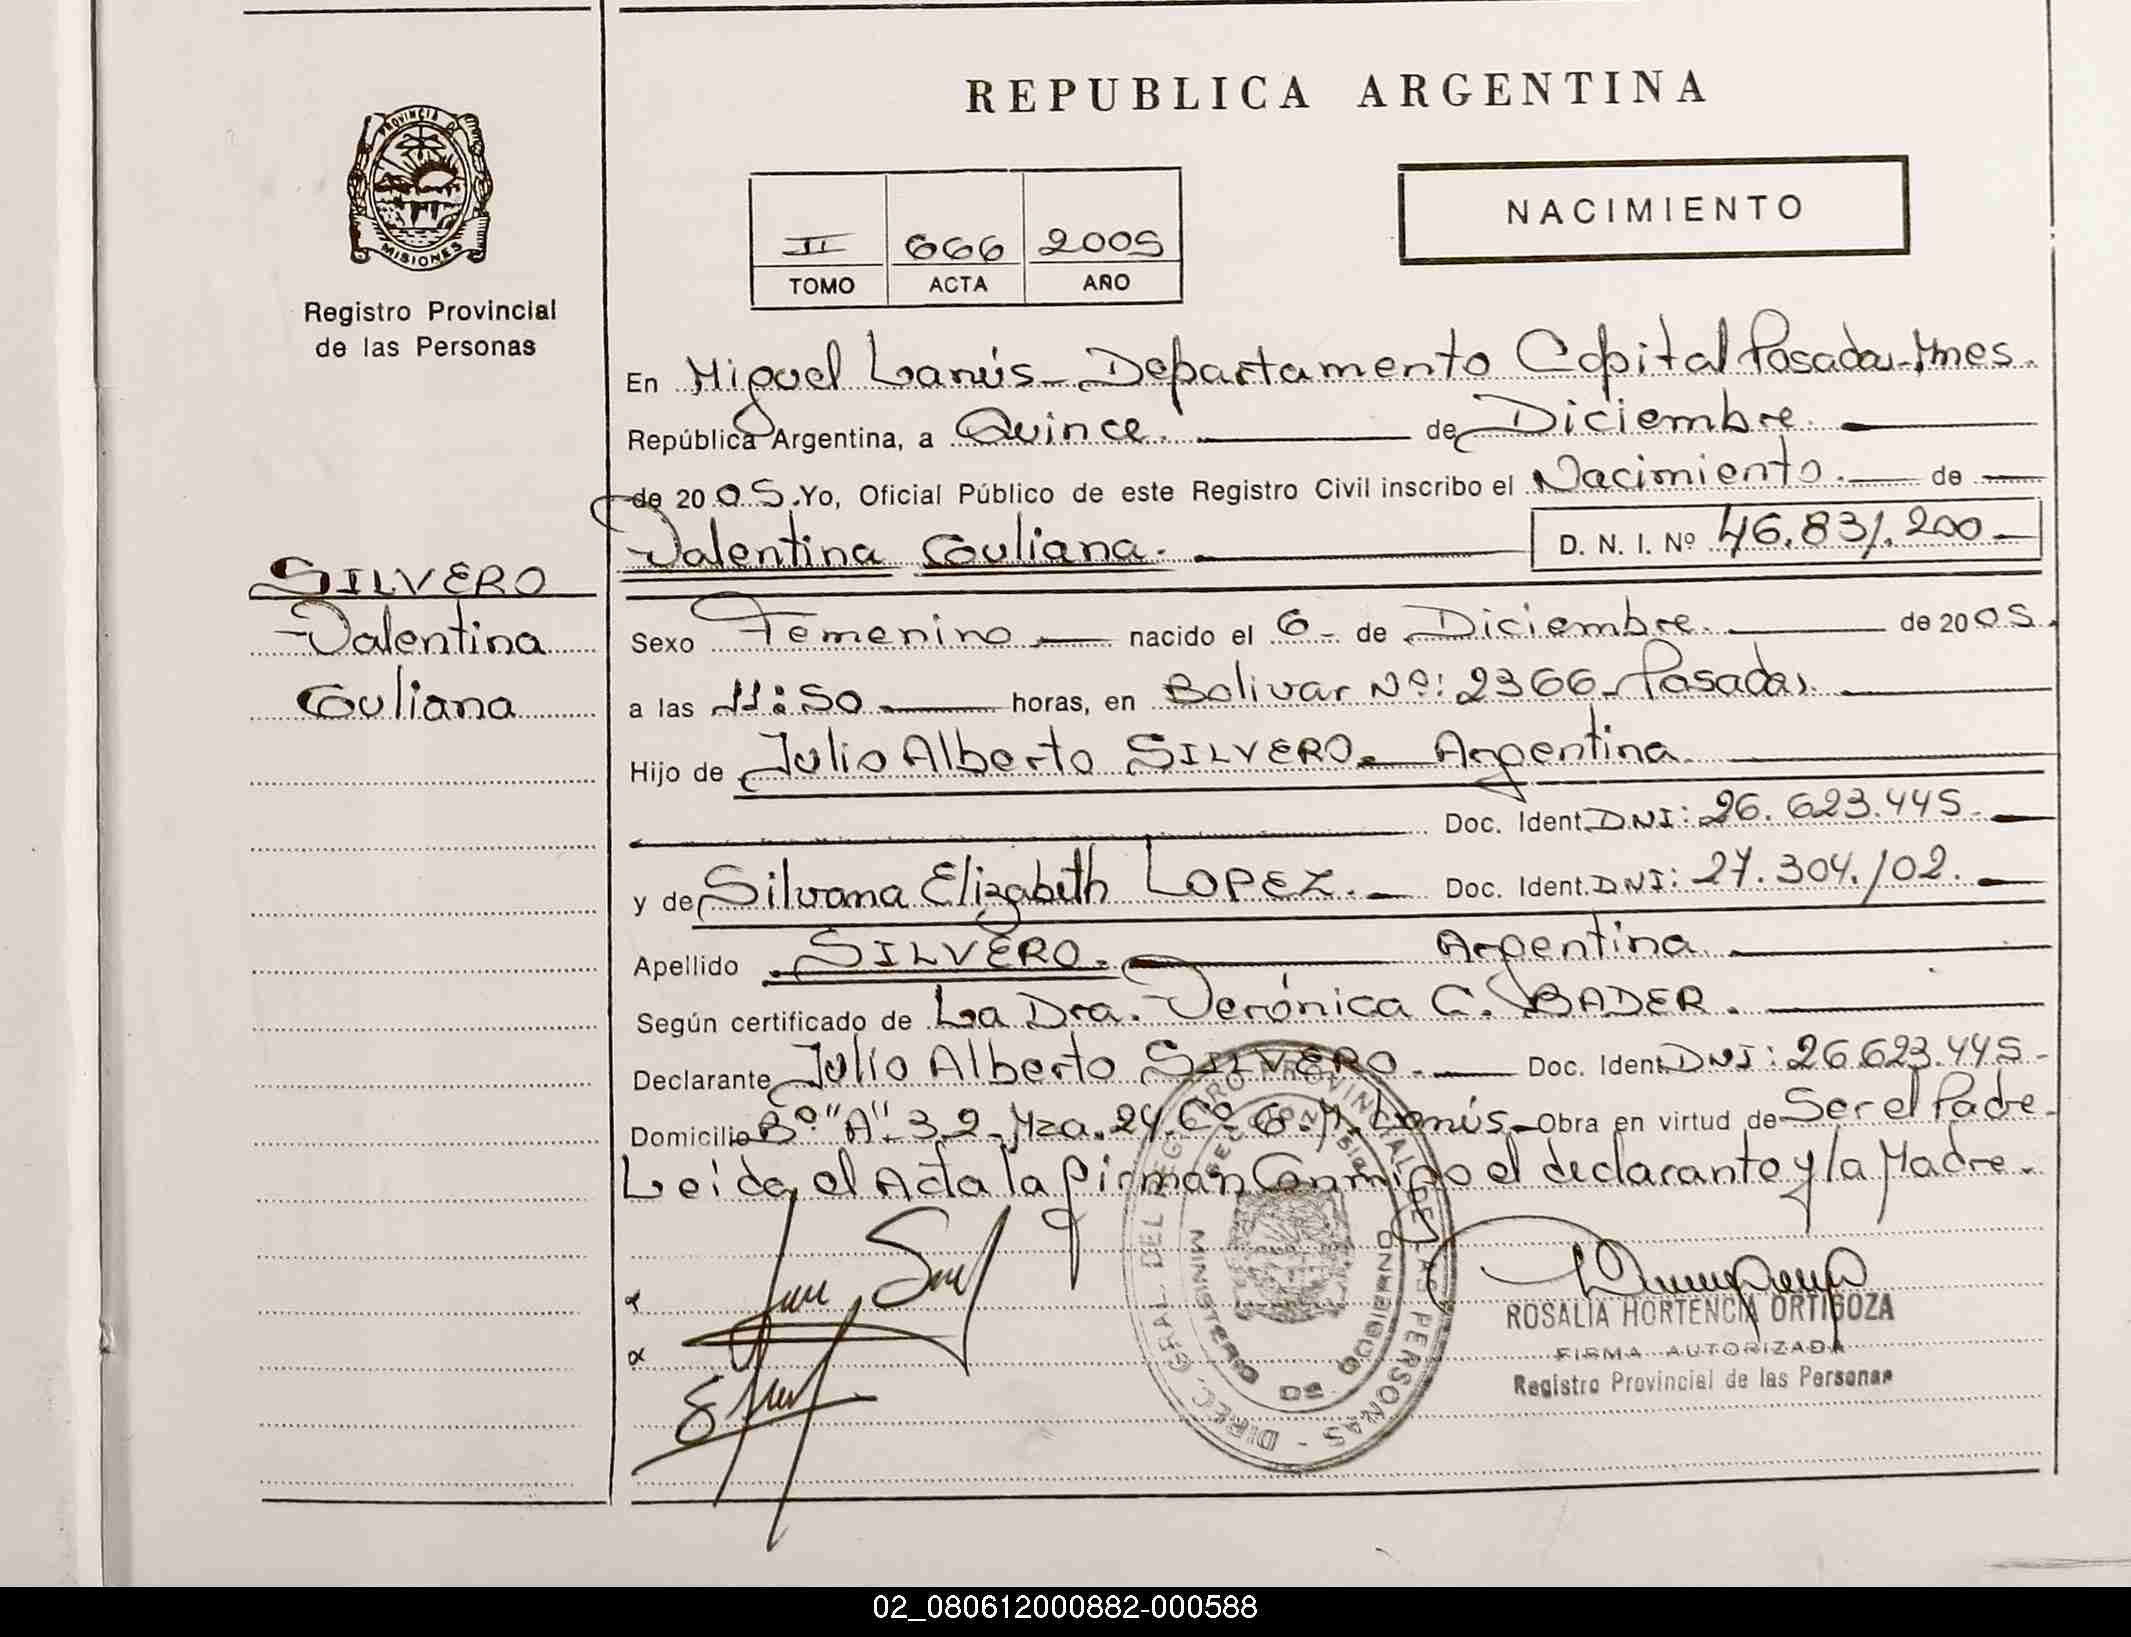 REPUBLICA ARGENTINA
PROVINCIA DE
MISIONES
Registro Provincial
de las Personas
II 666 2005
TOMO ACTA AÑO
NACIMIENTO
En Miguel Lanús - Departamento Capital Posadas - Mnes.
República Argentina, a Quince. de Diciembre.
de 2005. Yo, Oficial Público de este Registro Civil inscribo el Nacimiento. de
Valentina Guliana. D. N. I. Nº 46.831.200
SILVERO
Valentina
Guliana
Sexo Femenino nacido el 6 - de Diciembre. de 2005.
a las 11:50 horas, en Bolivar Nº: 2366 - Posadas.
Hijo de Julio Alberto SILVERO. Argentina.
Doc. Ident. DNI: 26.623.445.
y de Silvana Elizabeth LOPEZ. Doc. Ident. DNI: 27.304.102.
Apellido SILVERO. Argentina
Según certificado de La Dra. Verónica C. BADER.
Declarante Julio Alberto SILVERO. Doc. Ident. DNI: 26.623.445 -
Domicilio Bº "A" 3.2 - Mza. 24. Cº 6. M. Lanús - Obra en virtud de Ser el Padre.
Leida el Acta la firman Conmigo el declarante y la Madre.
DIREC. GRAL. DEL REGISTRO PROVINCIAL DE LAS PERSONAS
MINISTERIO DE GOBIERNO
ROSALIA HORTENCIA ORTIGOZA
FIRMA AUTORIZADA
Registro Provincial de las Personas
02_080612000882-000588